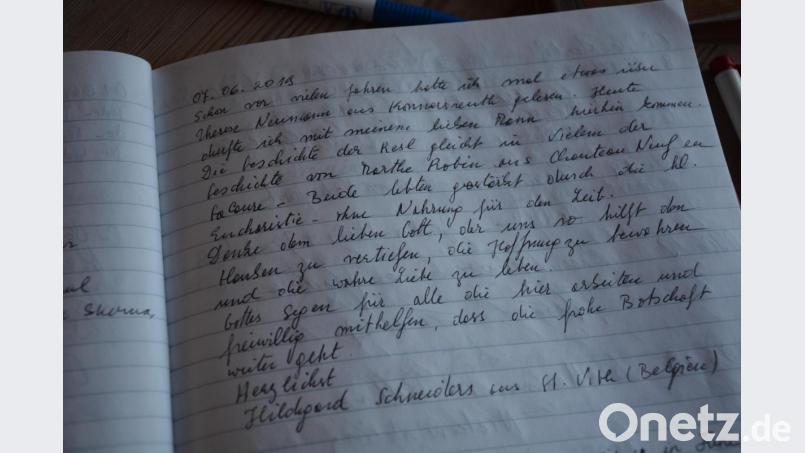 07.06.2018
Schon vor vielen Jahren hatte ich mal etwas über
Therese Neumann aus Konnersreuth gelesen. Heute
durfte ich mit meinem lieben Mann hierhin kommen.
Die Geschichte der Resl gleicht in Vielem der
Geschichte von Marthe Robin aus Chateau Neuf en
Beide lebten gestärkt durch die hl.
Eucharistie - ohne Nahrung für den Leib.
Danke dem lieben Gott, der uns so hilft den
zu vertiefen, die Hoffnung zu bewahren
und die wahre Liebe zu leben.
Gottes Segen für alle die hier arbeiten und
freiwillig mithelfen, dass die frohe Botschaft
weiter geht.
Herzlichst
Hildegard Schneiders aus St. Vith (Belgien)
Onetz.de